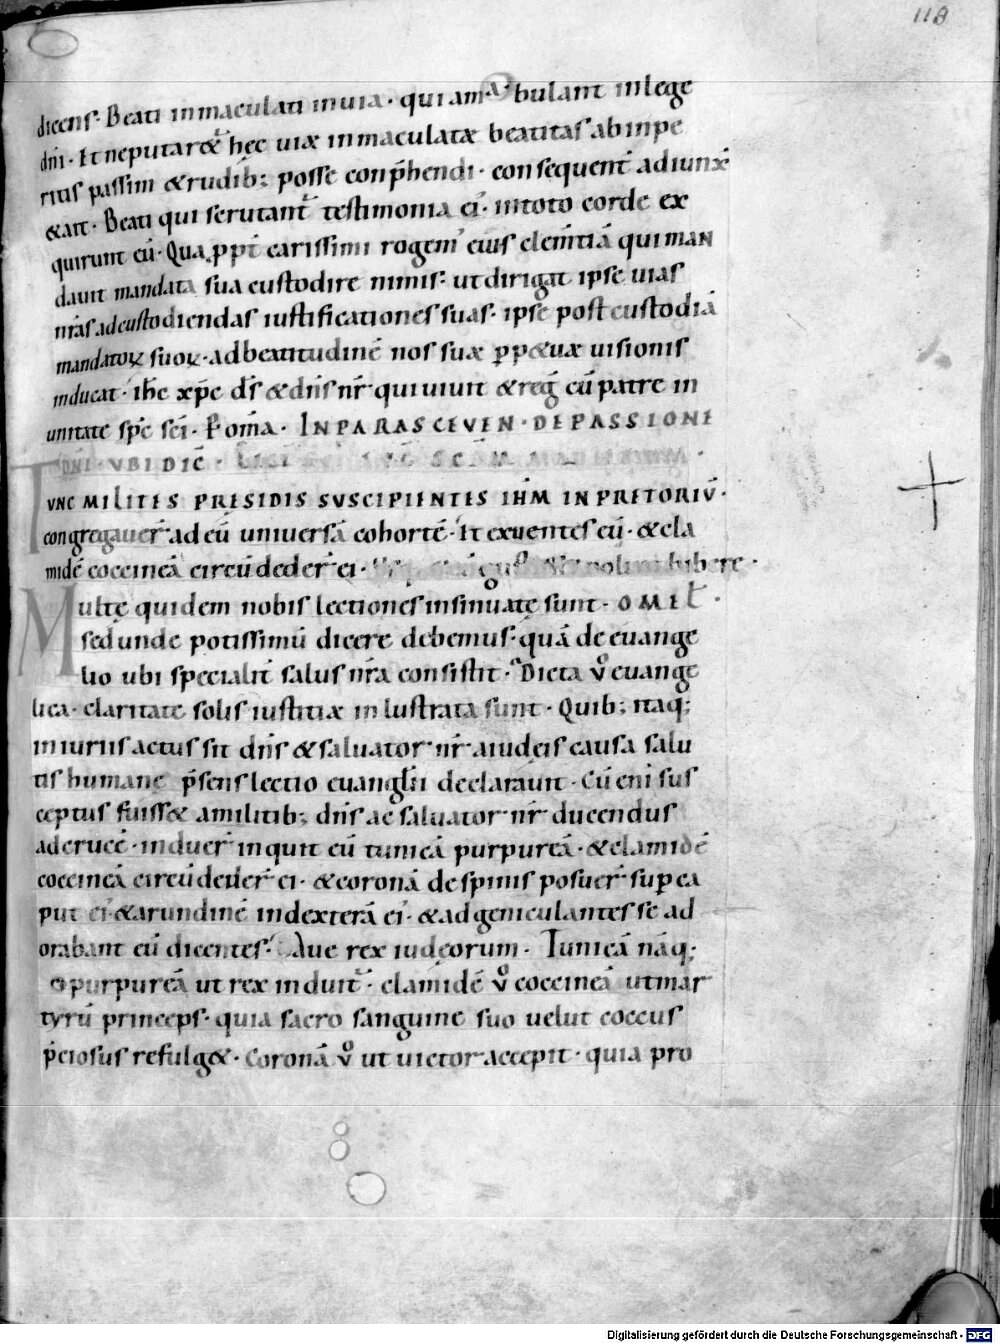 118
dicens· Beati inmaculati inuia· qui ambulant inlege
dn̄i· Et neputaret̄ hęc uiæ inmaculatæ beatitas ab inpe
ritis passim & rudib; posse conp̄hendi· consequent̄ adiunx
& ait· Beati qui scrutant̄ testimonia ei'· intoto corde ex
quirunt eū· Qua ꝓpt̄ carissimi rogem' eius clem̄tiā qui man
dauit mandata sua custodire nimis· ut dirigat ipse uias
nr̄as ad custodiendas iustificationes suas· ipse post custodiā
mandatoꝝ suoꝝ· ad beatitudinē nos suæ ꝑp&uæ uisionis
inducat· ih̄c xp̄c d̄s & dn̄s nr̄ qui uiuit & reḡ cū patre in
unitate sp̄c sc̄i· P om̄a· INPARASCEVEN· DEPASSIONE
DN̄I· VBI DIC̄·
TVNC MILITES PRESIDIS SVSCIPIENTES IHM̄ IN PRETORIV̄·
congregauer̄ ad eū uniuersā cohortē· Et exuentes eū· & cla
midē coccineā circūdeder̄ ei· noluit bibere·
Multę quidem nobis lectiones insinuatę sunt· OMEL̄·
sed unde potissimū dicere debemus· quā de euange
lio ubi specialit̄ salus nr̄a consistit· Dicta v̊ euange
lica· claritate solis iustitiæ inlustrata sunt· Quib; itaq;
iniuriis actus sit dn̄s & saluator nr̄ aiudeis causa salu
tis humane p̄sens lectio euanglīi declarauit· Cū eni sus
ceptus fuiss& amilitib; dn̄s ac saluator nr̄ ducendus
adcrucē· induer̄ inquit eū tunicā purpureā· & clamidē
coccineā circūdeder̄ ei· & coronā despinis posuer̄ suꝑ ca
put ei' & arundinē indexterā ei'· & adgeniculantes se ad
orabant eū dicentes· Aue rex iudeorum· Tunicā nāq;
purpureā ut rex induit̄· clamidē v̊ coccineā utmar
tyrū princeps· quia sacro sanguine suo uelut coccus
p̄ciosus refulg&· Coronā v̊ ut uictor accepit· quia pro
Digitalisierung gefördert durch die Deutsche Forschungsgemeinschaft - DFG